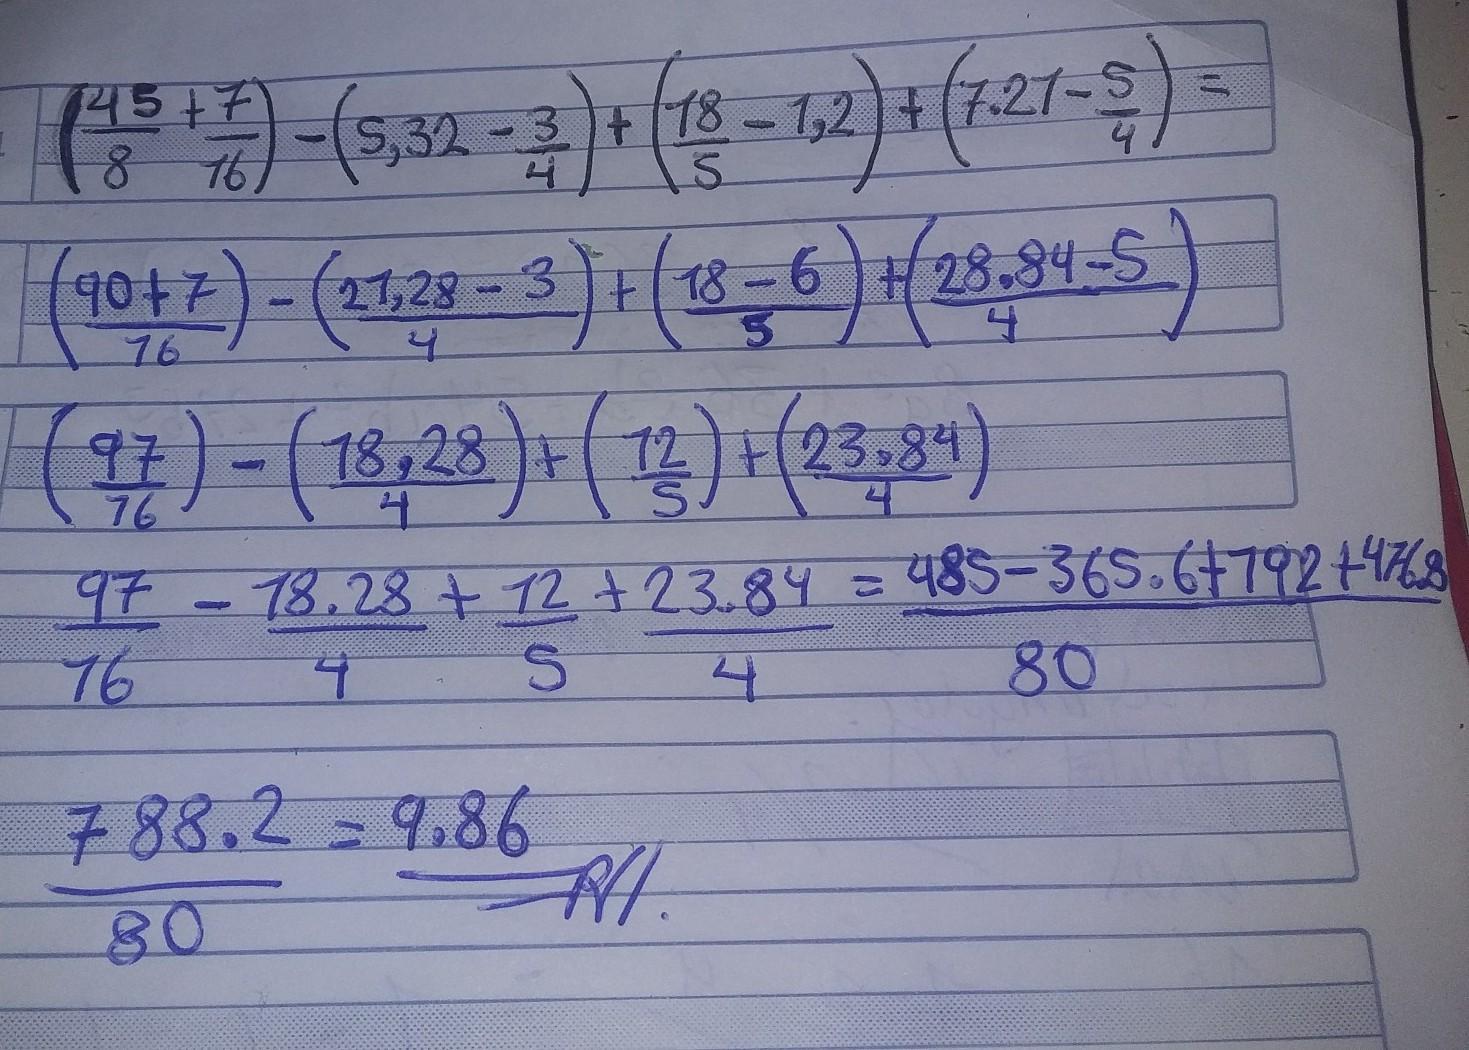 (45/8 + 7/16) - (5,32 - 3/4) + (18/5 - 1,2) + (7.21 - 5/4) =
(90+7/16) - (21,28 - 3/4) + (18 - 6/5) + (28.84 - 5/4)
(97/16) - (18,28/4) + (12/5) + (23.84/4)
97/16 - 18.28/4 + 12/5 + 23.84/4 = 485 - 365.6 + 192 + 476.8/80
788.2/80 = 9.86 R//.